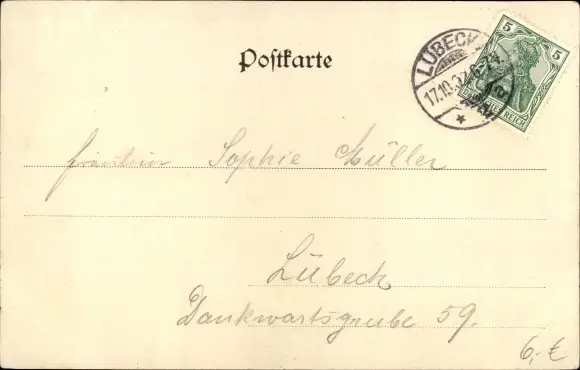 Postkarte
LÜBECK
17.10.02.6-7V.
5 5
REICH
Fräulein Sophie Müller
Lübeck
Dankwartsgrube 59.
6,- €